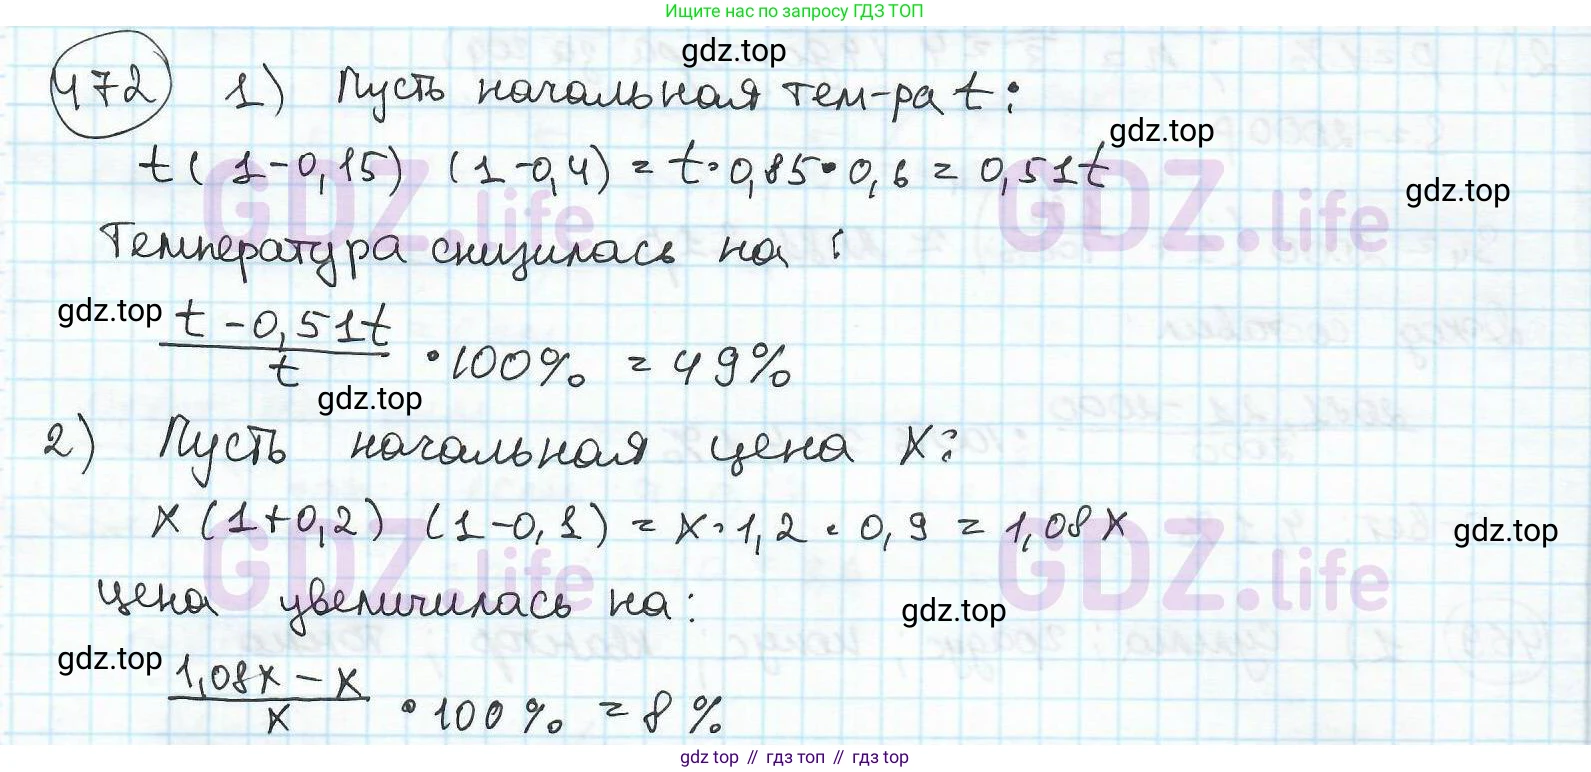 Ищите нас по запросу ГДЗ ТОП
gdz.top
472 1) Пусть начальная тем-ра t:
gdz.top
t(1-0,15) (1-0,4) = t·0,85·0,6 = 0,51t
gdz.top
GDZ.life GDZ.life
Температура снизилась на:
gdz.top
t-0,51t
t
·100% = 49%
gdz.top
2) Пусть начальная цена x:
x(1+0,2) (1-0,1) = x·1,2·0,9 = 1,08x
gdz.top
GDZ.life GDZ.life
цена увеличилась на:
gdz.top
gdz.top
1,08x-x
x
·100% = 8%
gdz top // гдз топ // gdz.top